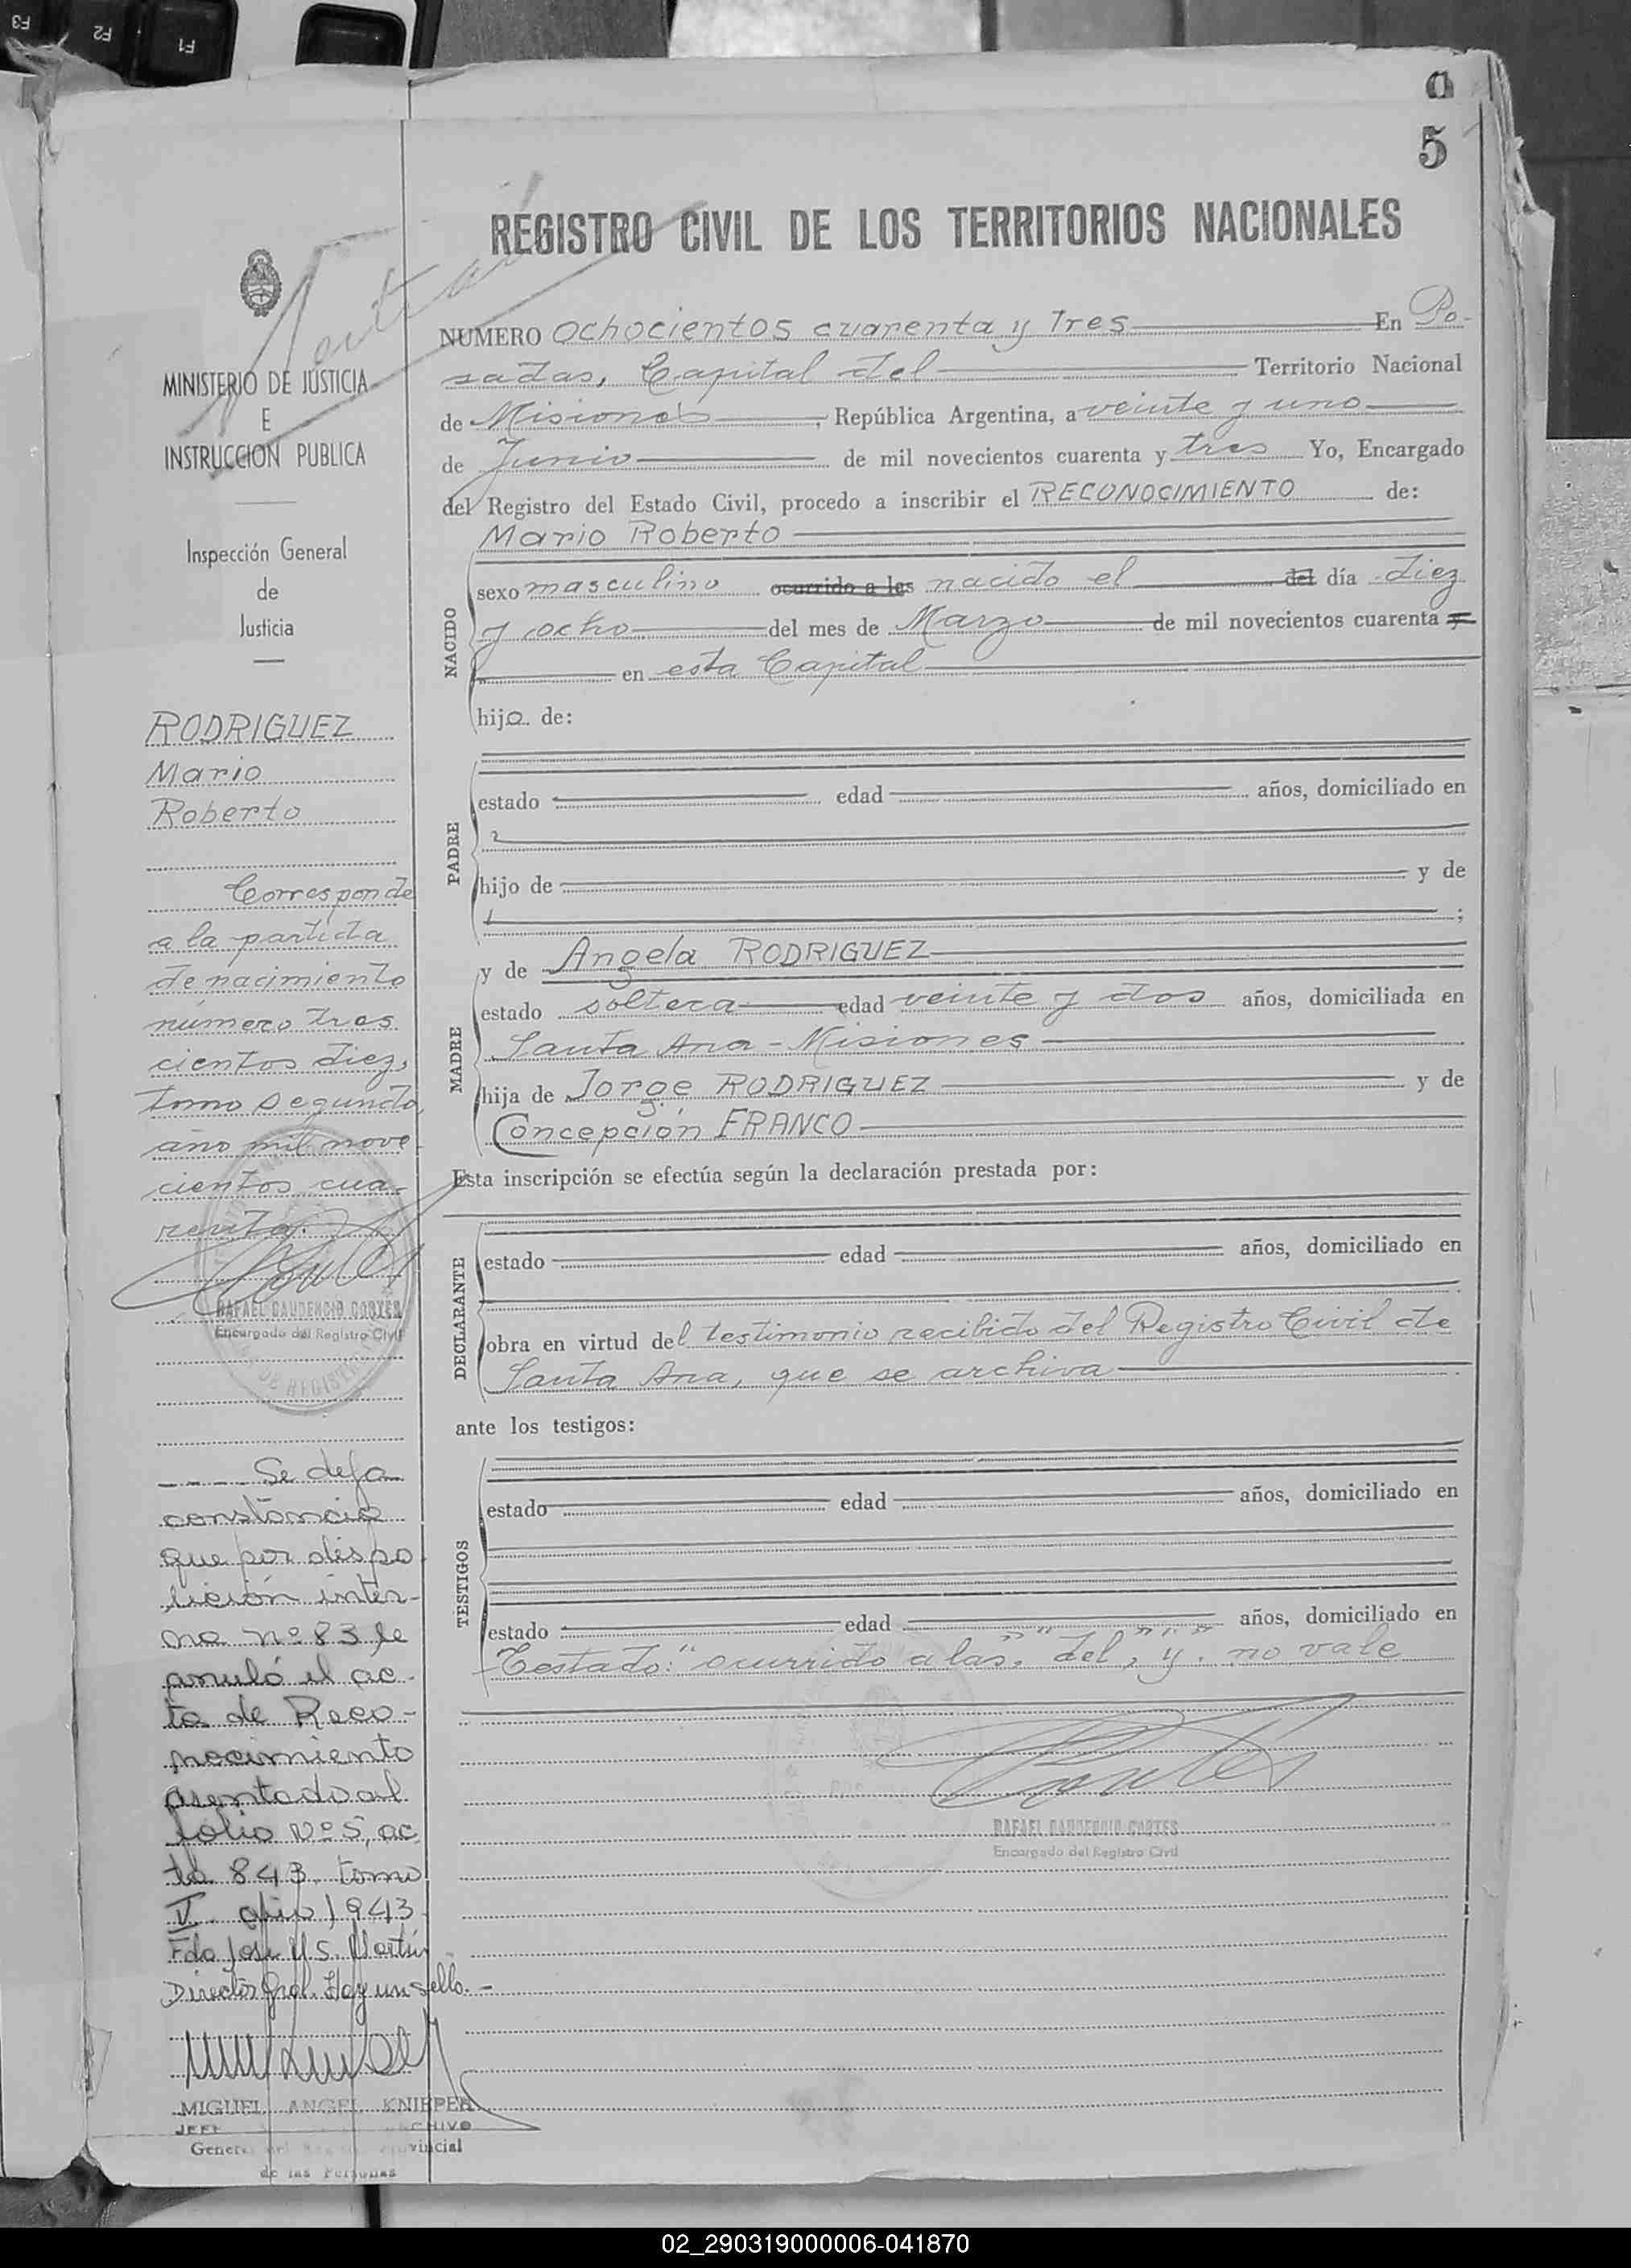 F3
F2
F1
a
5
REGISTRO CIVIL DE LOS TERRITORIOS NACIONALES
MINISTERIO DE JUSTICIA
E
INSTRUCCION PUBLICA
Inspección General
de
Justicia
RODRIGUEZ
Mario
Roberto
Corresponde
a la partida
de nacimiento
número tres
cientos diez,
tomo segundo,
año mil nove-
cientos cua-
renta.
RAFAEL GAUDENCIO CORTES
Encargado del Registro Civil
Se deja
constancia
que por dispo
sición inter-
na nº 83 se
anuló el ac-
ta de Reco-
nocimiento
asentado al
folio Nº 5, ac
ta 843 tomo
V año 1943
Fdo José M S. Martín
Director Gral. Hay un sello.-
MIGUEL ANGEL KNIEPER
de las Personas
NUMERO Ochocientos cuarenta y Tres En Po-
sadas, Capital del Territorio Nacional
de Misiones, República Argentina, a veinte y uno
de Junio de mil novecientos cuarenta y tres Yo, Encargado
del Registro del Estado Civil, procedo a inscribir el RECONOCIMIENTO de:
NACIDO
Mario Roberto
sexo masculino ocurrido a las nacido el del día diez
y ocho del mes de Marzo de mil novecientos cuarenta y
en esta Capital
hijo de:
PADRE
estado edad años, domiciliado en
hijo de y de
;
MADRE
y de Angela RODRIGUEZ
estado soltera edad veinte y dos años, domiciliada en
Santa Ana - Misiones
hija de Jorge RODRIGUEZ y de
Concepción FRANCO
Esta inscripción se efectúa según la declaración prestada por:
DECLARANTE
estado edad años, domiciliado en
obra en virtud del testimonio recibido del Registro Civil de
Santa Ana, que se archiva
ante los testigos:
TESTIGOS
estado edad años, domiciliado en
estado edad años, domiciliado en
Testado: "ocurrido a las", "del", "y". no vale
RAFAEL GAUDENCIO CORTES
Encargado del Registro Civil
02_290319000006-041870